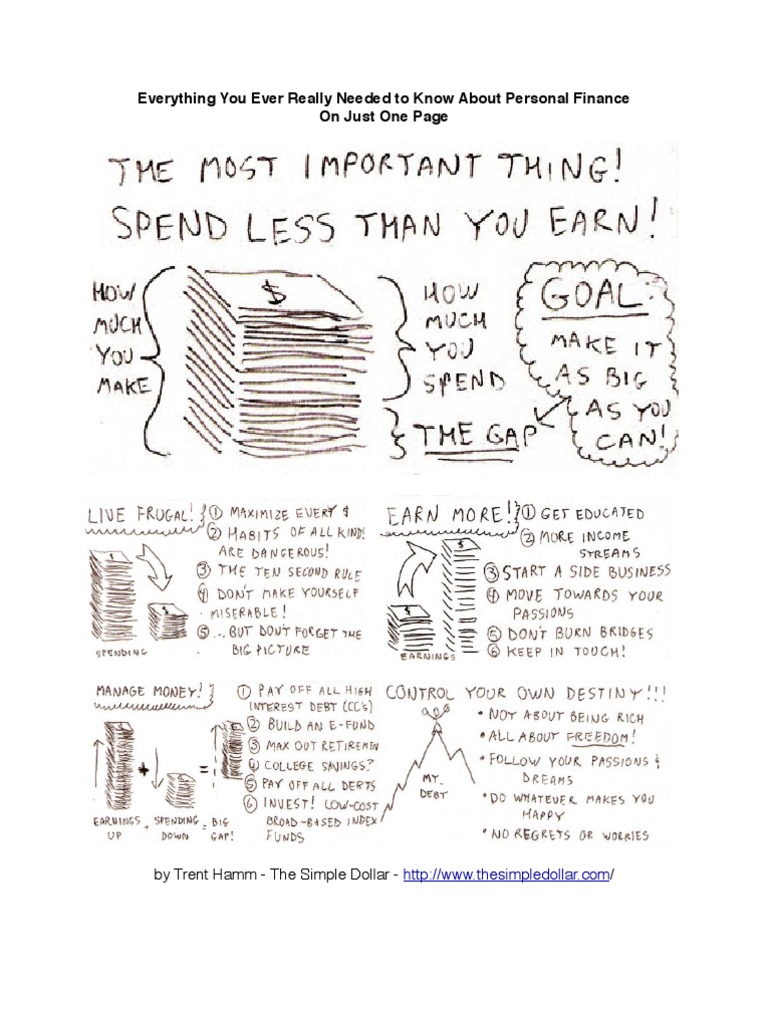 Everything You Ever Really Needed to Know About Personal Finance
On Just One Page
THE MOST IMPORTANT THING!
SPEND LESS THAN YOU EARN!
HOW
MUCH
YOU
MAKE
$
HOW
MUCH
YOU
SPEND
THE GAP
GOAL:
MAKE IT
AS BIG
AS YOU
CAN!
LIVE FRUGAL!
① MAXIMIZE EVERY $
② HABITS OF ALL KINDS
ARE DANGEROUS!
③ THE TEN SECOND RULE
④ DON'T MAKE YOURSELF
MISERABLE!
⑤ ...BUT DON'T FORGET THE
BIG PICTURE
$
$
SPENDING
EARN MORE!
① GET EDUCATED
② MORE INCOME
STREAMS
③ START A SIDE BUSINESS
④ MOVE TOWARDS YOUR
PASSIONS
⑤ DON'T BURN BRIDGES
⑥ KEEP IN TOUCH!
$
$
EARNINGS
MANAGE MONEY!
① PAY OFF ALL HIGH
INTEREST DEBT (CC'S)
② BUILD AN E-FUND
③ MAX OUT RETIREMEN
④ COLLEGE SAVINGS?
⑤ PAY OFF ALL DEBTS
⑥ INVEST! LOW-COST
BROAD-BASED INDEX
FUNDS
+ =
EARNINGS + SPENDING = BIG
UP DOWN GAP!
CONTROL YOUR OWN DESTINY!!!
• NOT ABOUT BEING RICH
• ALL ABOUT FREEDOM!
• FOLLOW YOUR PASSIONS &
DREAMS
• DO WHATEVER MAKES YOU
HAPPY
• NO REGRETS OR WORRIES
MT.
DEBT
by Trent Hamm - The Simple Dollar - http://www.thesimpledollar.com/